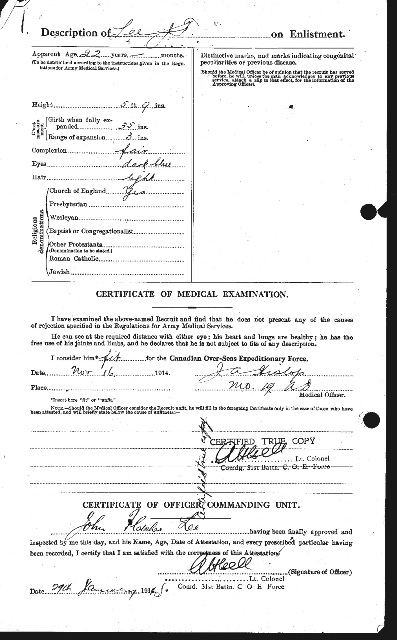 Description of Lee J F on Enlistment.
Apparent Age 22 years - months.
(To be determined according to the instructions given in the Regulations for Army Medical Services.)
Distinctive marks, and marks indicating congenital peculiarities or previous disease.
(Should the Medical Officer be of opinion that the recruit has served before, he will, unless the man acknowledges to any previous service, attach a slip to that effect, for the information of the Approving Officer).
Height 5 ft. 9 ins
Chest measurement
Girth when fully expanded 35 ins.
Range of expansion 3 ins.
Complexion fair
Eyes dark blue
Hair light
Religious denominations.
Church of England Yes
Presbyterian
Wesleyan
Baptist or Congregationalist
Other Protestants
(Denomination to be stated.)
Roman Catholic
Jewish
CERTIFICATE OF MEDICAL EXAMINATION.
I have examined the above-named Recruit and find that he does not present any of the causes
of rejection specified in the Regulations for Army Medical Services.
He can see at the required distance with either eye; his heart and lungs are healthy; he has the
free use of his joints and limbs, and he declares that he is not subject to fits of any description.
I consider him* fit for the Canadian Over-Seas Expeditionary Force.
Date Nov 16 1914. J A Hislop
Place M.O. 19 A D
Medical Officer.
*Insert here "fit" or "unfit."
NOTE.—Should the Medical Officer consider the Recruit unfit, he will fill in the foregoing Certificate only in the case of those who have
been attested, and will briefly state below the cause of unfitness:—
Certified true copy
CERTIFIED TRUE COPY
Lt. Colonel
Comdg. 31st Battn. C. O. E. Force
CERTIFICATE OF OFFICER COMMANDING UNIT.
John Lee having been finally approved and
inspected by me this day, and his Name, Age, Date of Attestation, and every prescribed particular having
been recorded, I certify that I am satisfied with the correctness of this Attestation.
(Signature of Officer)
Lt. Colonel
Comdg. 31st Battn. C O E Force
Date 29th January 1915.